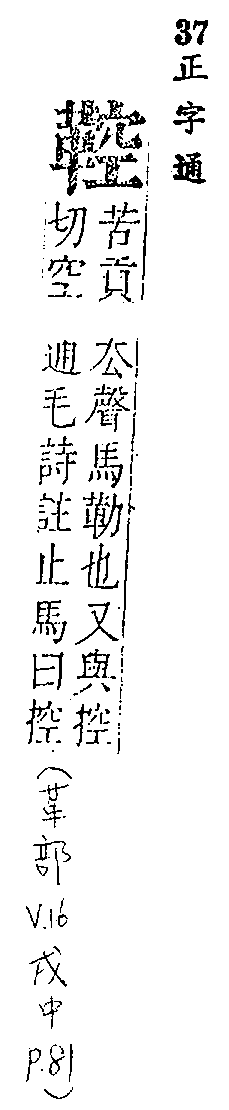 37正字通
鞚
苦貢
切空
去聲馬勒也又與控
通毛詩註止馬曰控
(革部V.16戌中P.81)